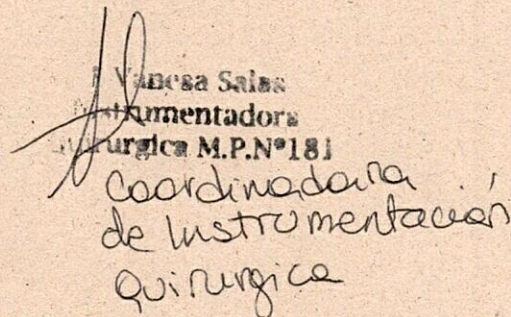 Vanesa Salas
Instrumentadora
Quirurgica M.P.N°181
Coordinadora
de Instrumentación
Quirurgica